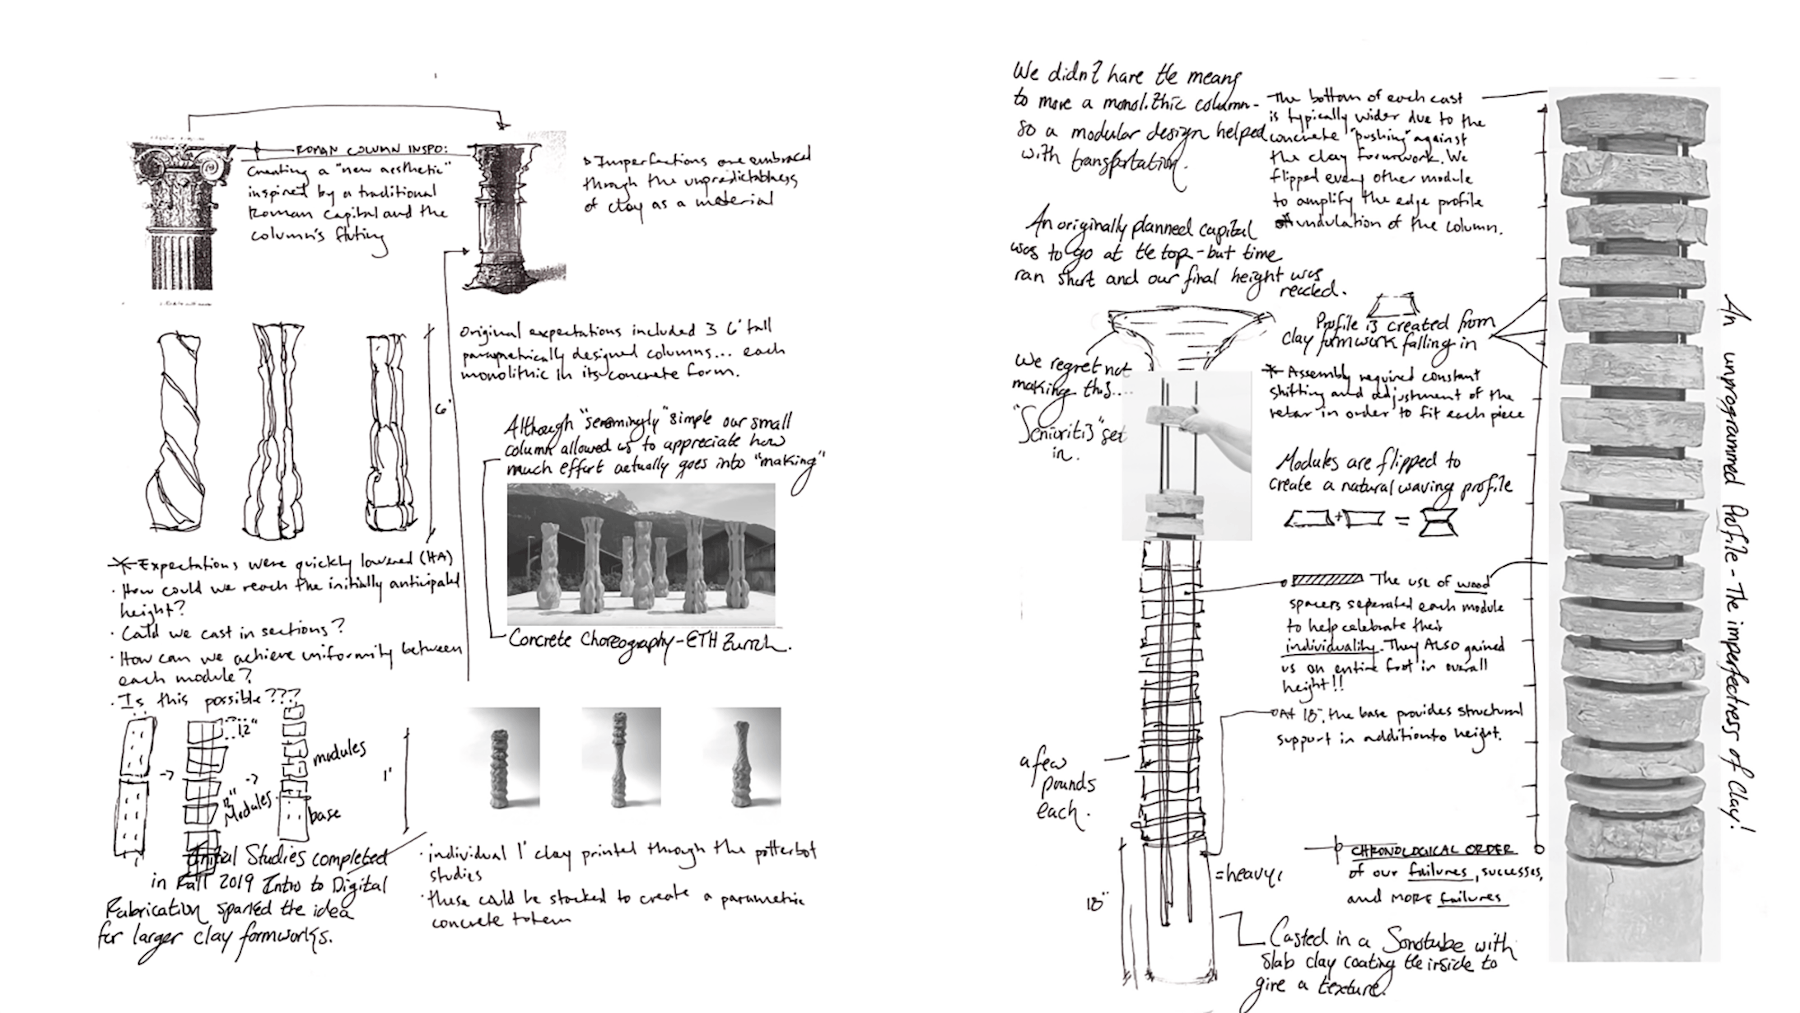 ROMAN COLUMN INSPO:
Creating a "new aesthetic"
inspired by a traditional
Roman Capital and the
column's fluting
Imperfections are embraced
through the unpredictableness
of clay as a material
Original expectations included 3 6' tall
parametrically designed columns... each
monolithic in its concrete form.
6'
Although "seemingly" simple our small
column allowed us to appreciate how
much effort actually goes into "making"
Concrete Choreography - ETH Zurich.
* Expectations were quickly lowered (HA)
· How could we reach the initially anticipated
height?
· Could we cast in sections?
· How can we achieve uniformity between
each module?
· Is this possible???
12"
modules
Modules
base
1'
Initial Studies completed
in Fall 2019 Intro to Digital
Fabrication sparked the idea
for larger clay formworks.
· individual 1' clay printed through the potterbot
studies
· these could be stacked to create a parametric
concrete totem
We didn't have the means
to move a monolithic column -
so a modular design helped
with transportation.
The bottom of each cast
is typically wider due to the
concrete "pushing" against
the clay formwork. We
flipped every other module
to amplify the edge profile
undulation of the column.
An originally planned capital
was to go at the top - but time
ran short and our final height was
reached.
Profile is created from
clay formwork falling in
We regret not
making this....
"Senioritis" set
in.
* Assembly required constant
shifting and adjustment of the
rebar in order to fit each piece
Modules are flipped to
create a natural waving profile
+ =
The use of wood
spacers separated each module
to help celebrate their
individuality. They ALSO gained
us an entire foot in overall
height!!
At 18", the base provides structural
support in addition to height.
a few
pounds
each.
18"
= heavy!
CHRONOLOGICAL ORDER
of our failures, successes,
and MORE failures
Casted in a Sonotube with
slab clay coating the inside to
give a texture.
An unprogrammed Profile - The imperfectness of Clay!